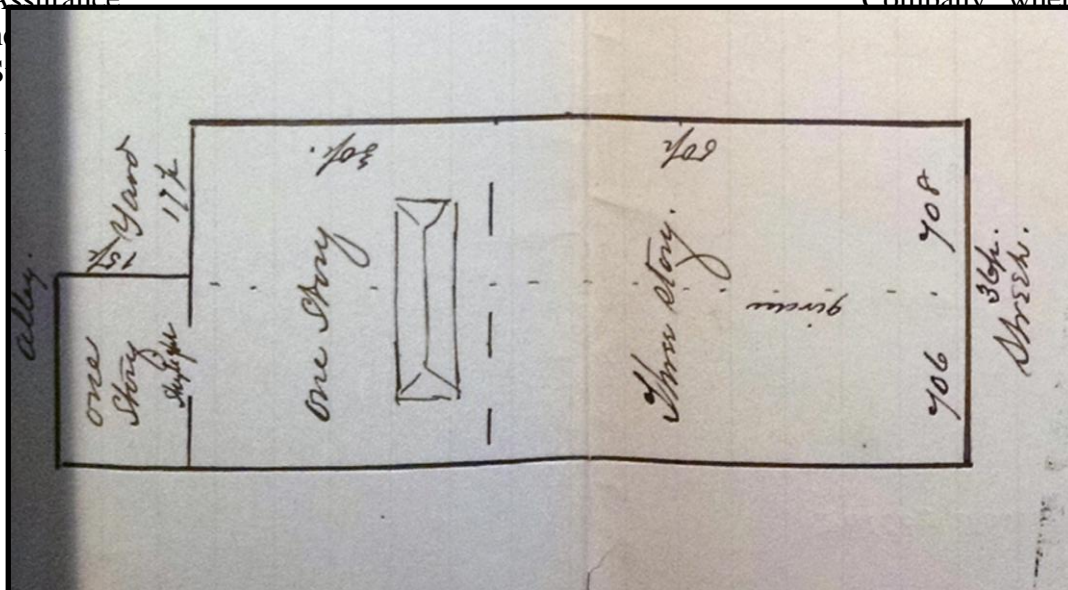 Assurance
Company
alley.
Yard
15f
17f
one
Story
Skylight
30f.
one Story
50f
Three Story.
girder
706
708
36f.
Street.